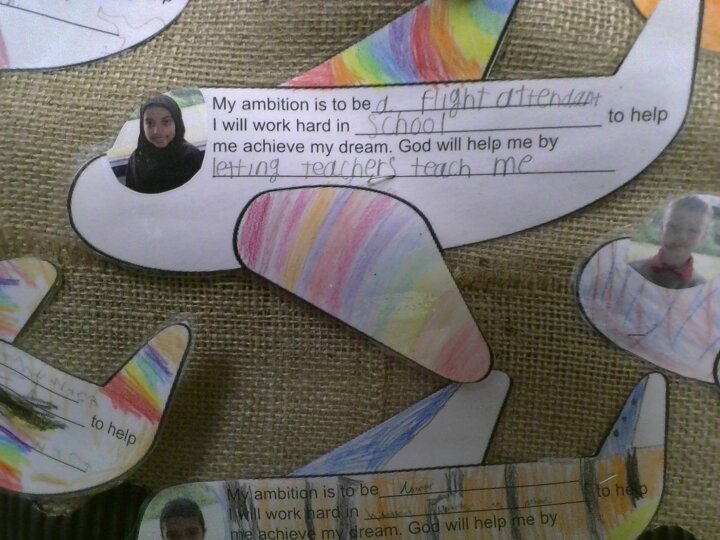 My ambition is to be a flight attendant
I will work hard in school to help
me achieve my dream. God will help me by
letting teachers teach me
to help
My ambition is to be to help
I will work hard in
me achieve my dream. God will help me by